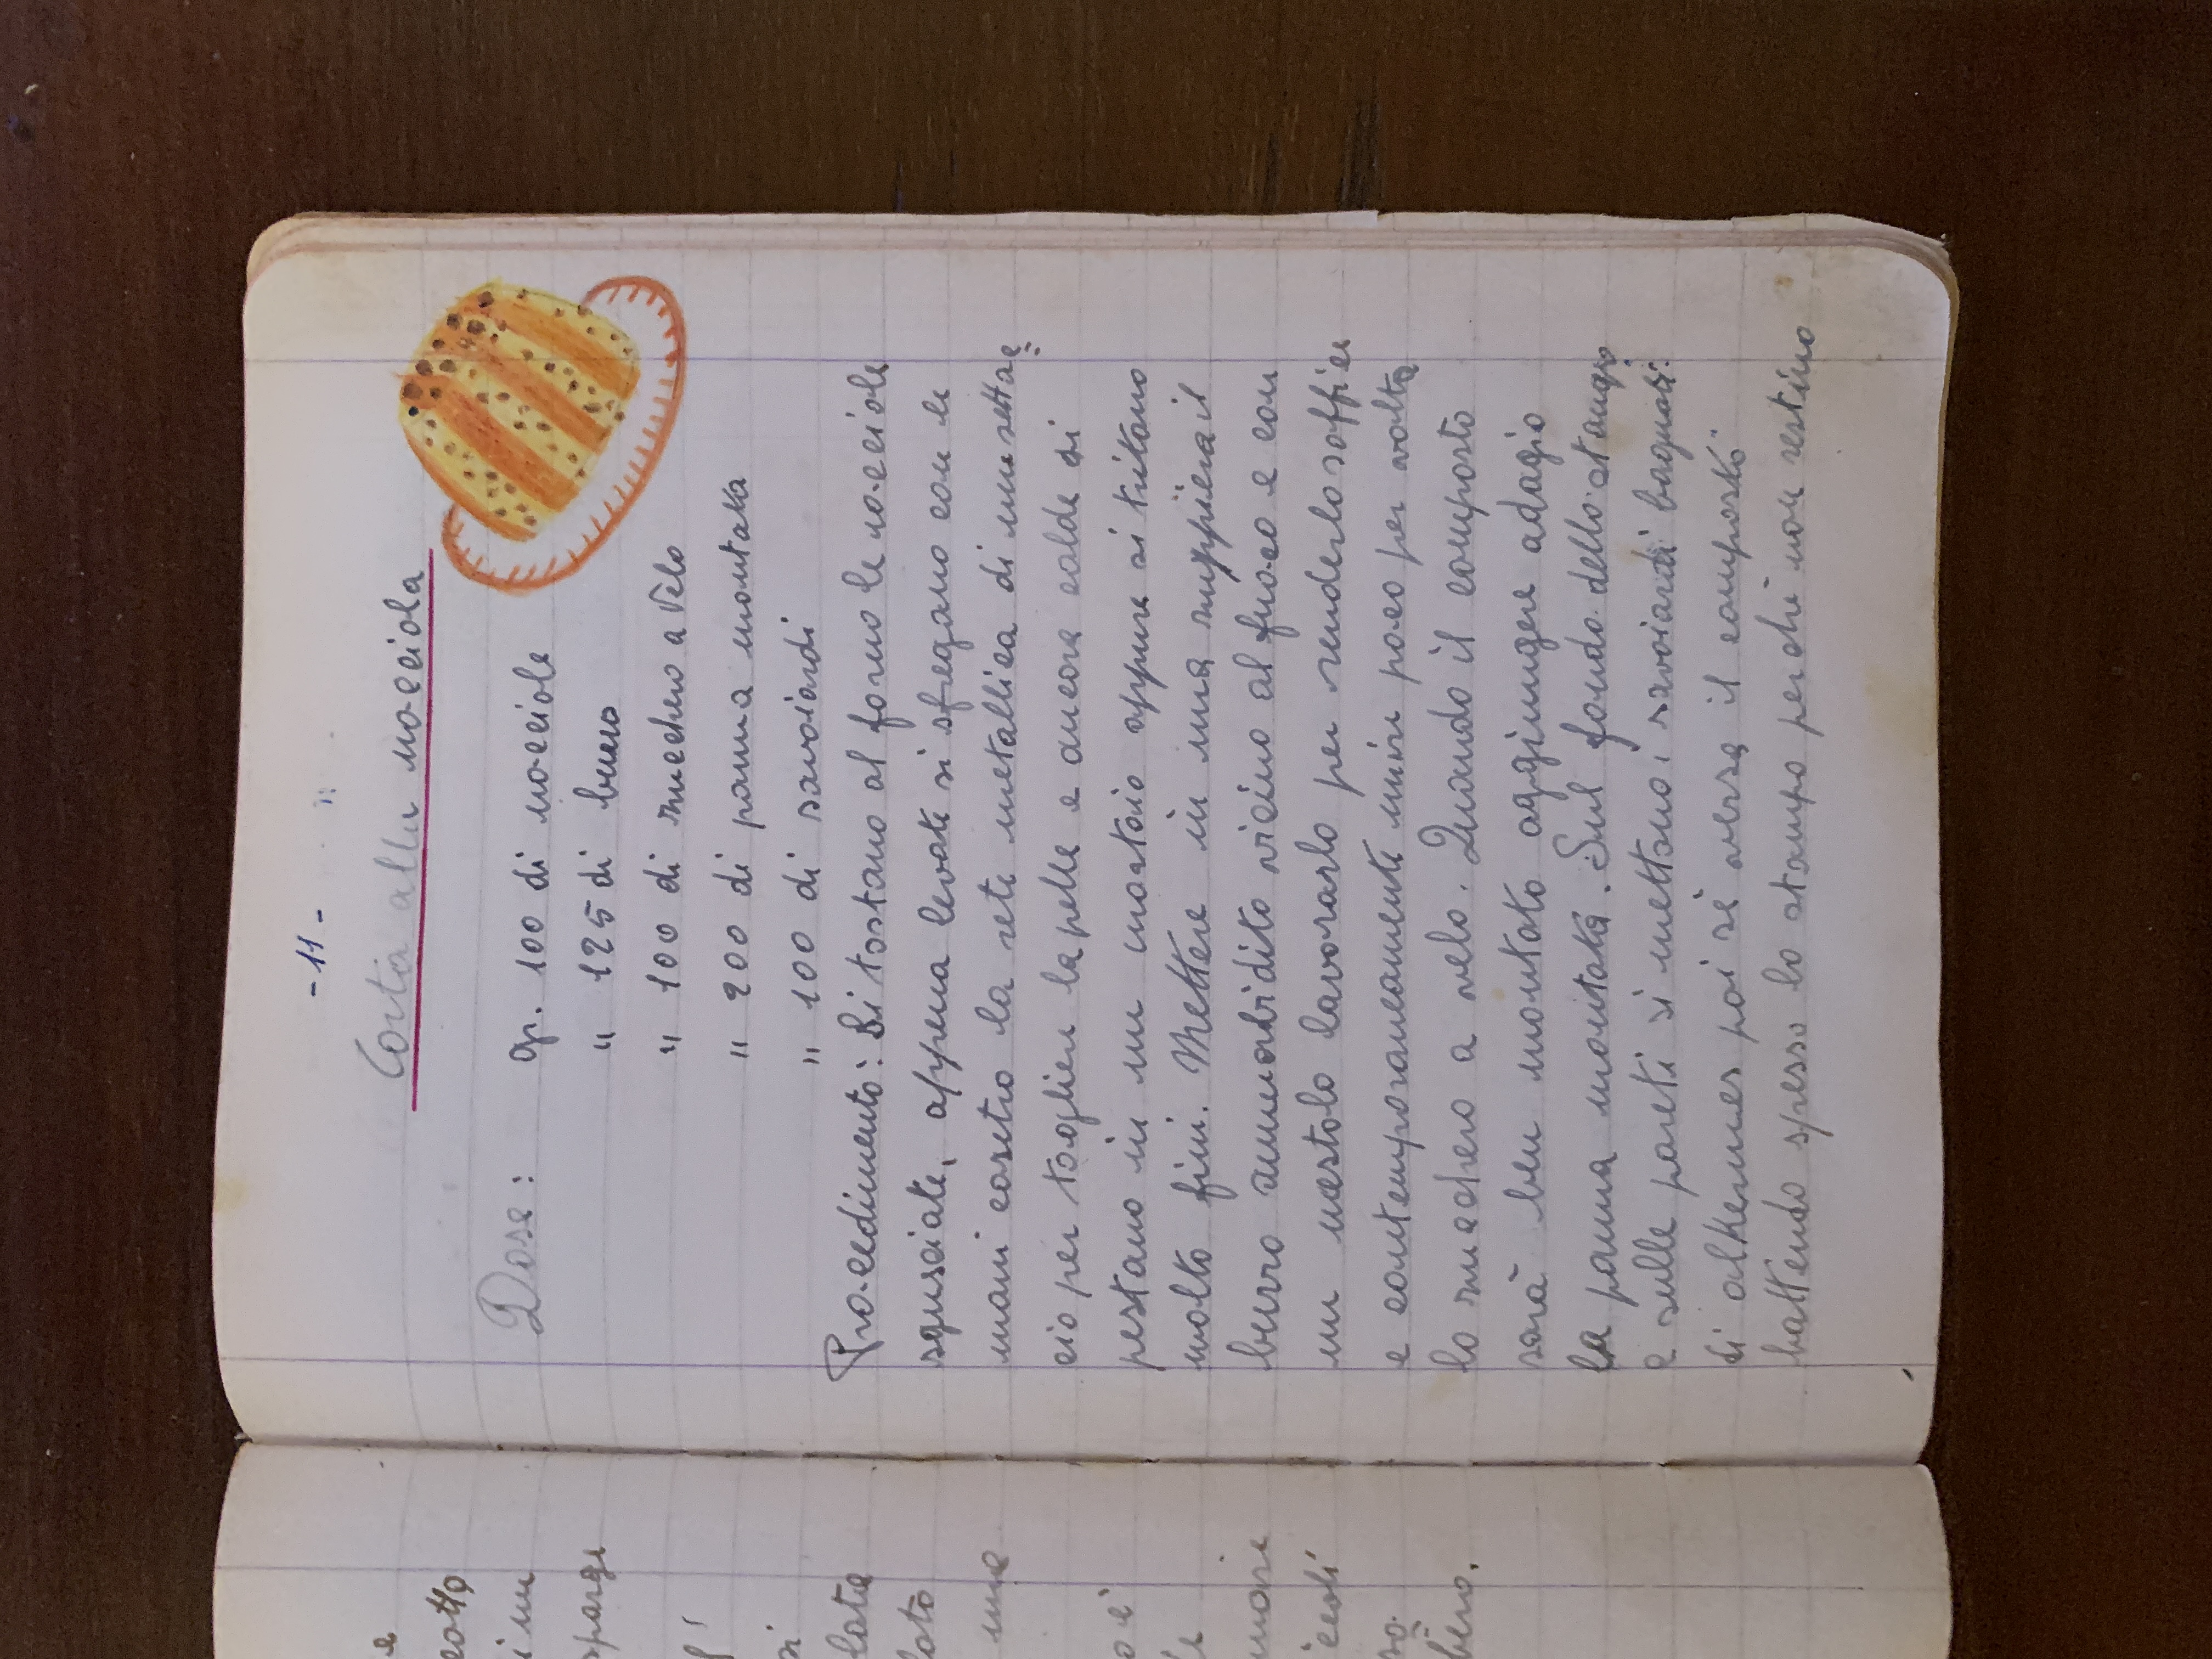 e
cotto
sparge
si
lata
lato
una
o è
beno.
- 11 -
Torta alla nocciola
Dose: gr. 100 di nocciole
" 125 di burro
" 100 di zucchero a velo
" 200 di panna montata
" 100 di savoiardi
Procedimento: Si tostano al forno le nocciole
sgusciate, appena levate si sfregano con le
mani contro la rete metallica di un settac=
cio per togliere la pelle e ancora calde si
pestano in un mortaio oppure si tritano
molto fini. Mettere in una zuppiera il
burro ammorbidito vicino al fuoco e con
un mestolo lavorarlo per renderlo soffice
e contemporaneamente unire poco per volta
lo zucchero a velo. Quando il composto
sarà ben montato aggiungere adagio
la panna montata. Sul fondo dello stampo
e sulle pareti si mettano i savoiardi bagnati
di alKermes poi si versa il composto
battendo spesso lo stampo perchè non restino